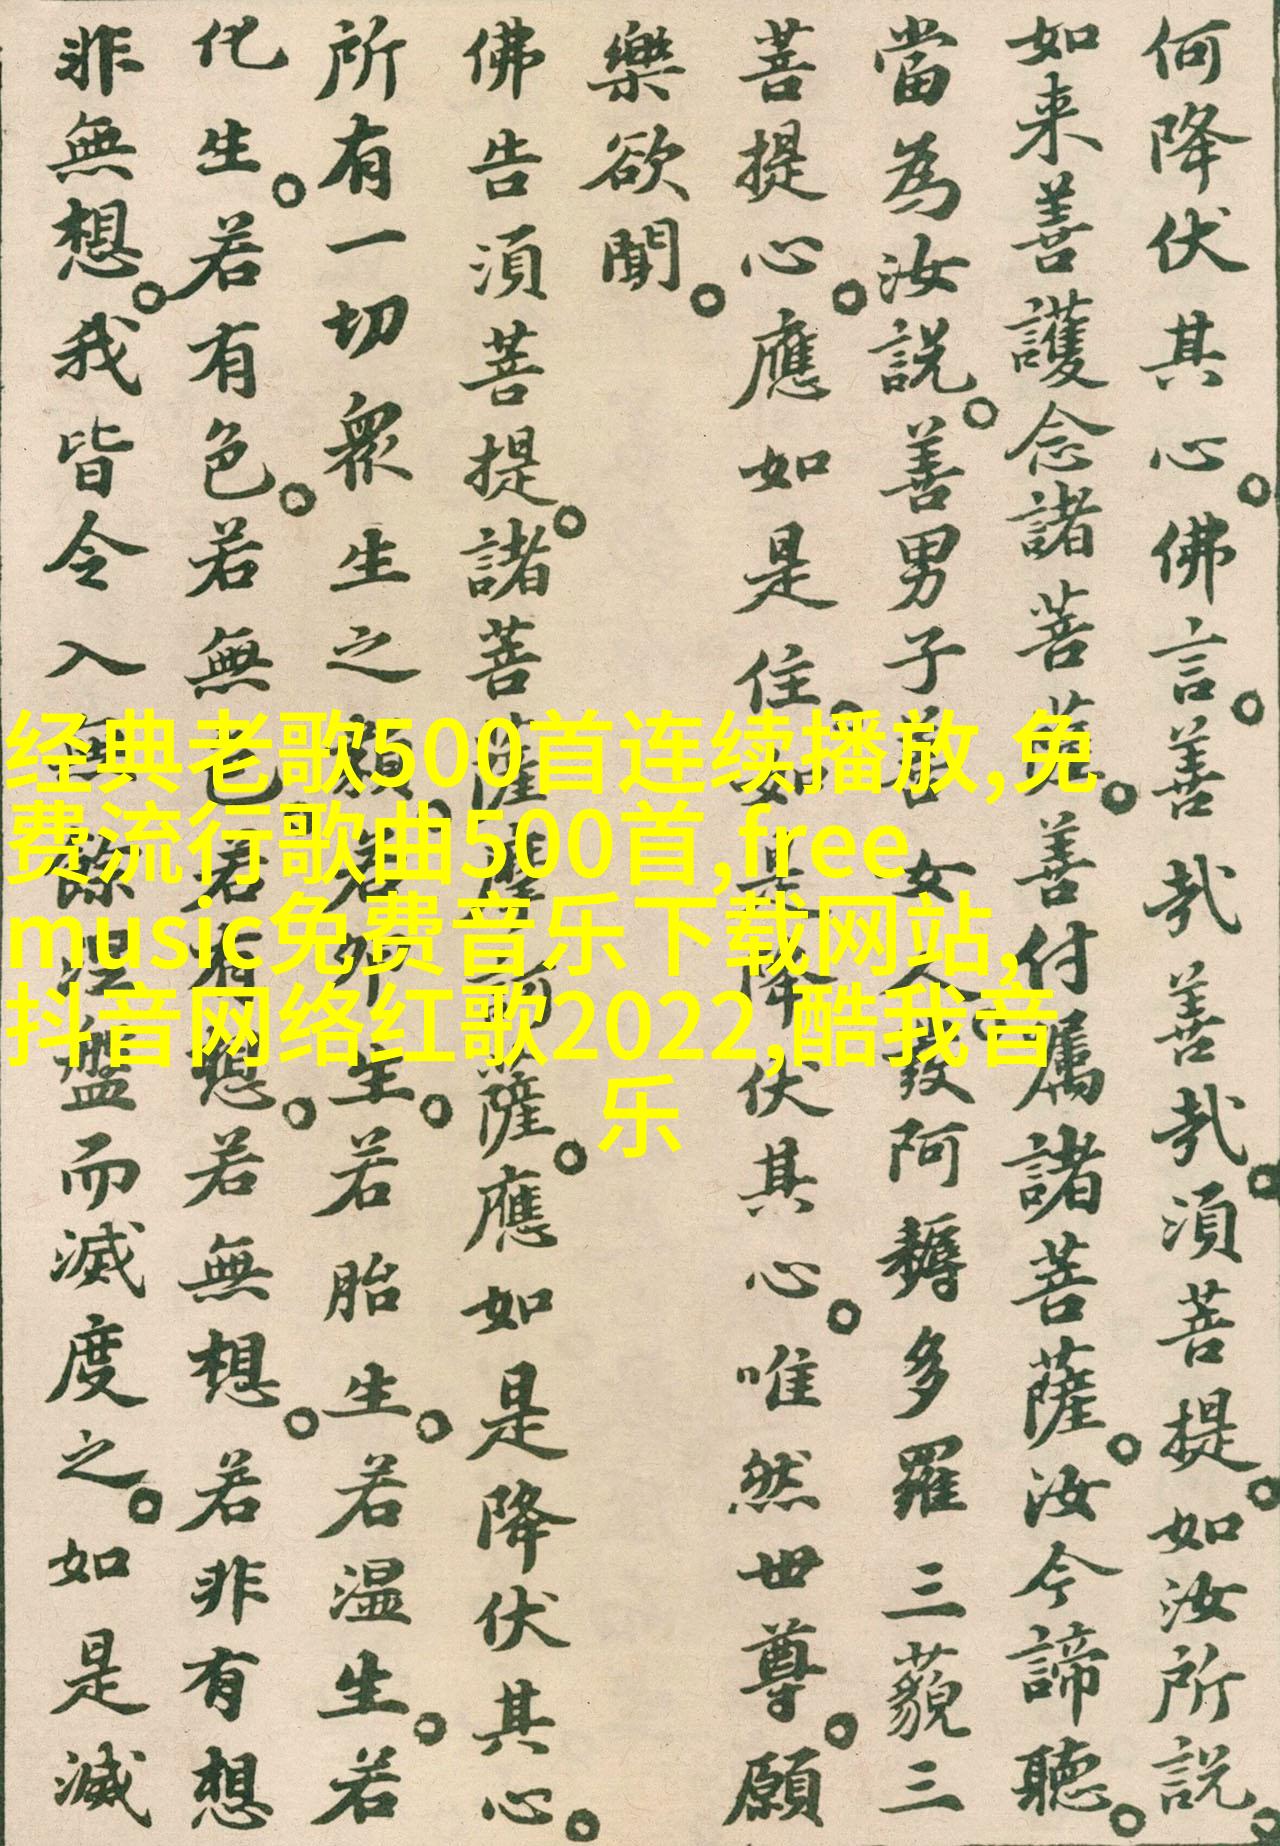 何降伏其心。佛言。善哉善哉。須菩提。如汝所說。
如来善護念諸菩薩。善付属諸菩薩。汝今諦聽。
當為汝說。善男子善女人。發阿耨多羅三藐三
菩提心。應如是住。如是降伏其心。唯然世尊。願
樂欲聞。
佛告須菩提。諸菩薩摩訶薩。應如是降伏其心。
所有一切衆生之類。若卵生。若胎生。若温生。若
化生。若有色。若無色。若有想。若無想。若非有想
非無想。我皆令入無餘涅盤而滅度之。如是滅
经典老歌500首连续播放,免
费流行歌曲500首,free
music免费音乐下载网站,
抖音网络红歌2022,酷我音
乐